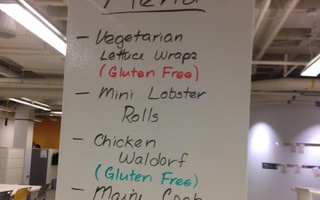 Menu
- Vegetarian
Lettuce Wraps
(Gluten Free)
- Mini Lobster
Rolls
- Chicken
Waldorf
(Gluten Free)
- Maine Crab